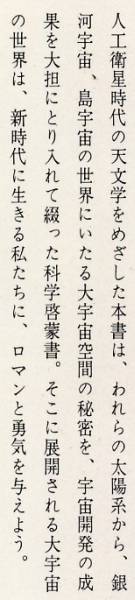 人工衛星時代の天文学をめざした本書は、われらの太陽系から、銀
河宇宙、島宇宙の世界にいたる大宇宙空間の秘密を、宇宙開発の成
果を大担にとり入れて綴った科学啓蒙書。そこに展開される大宇宙
の世界は、新時代に生きる私たちに、ロマンと勇気を与えよう。